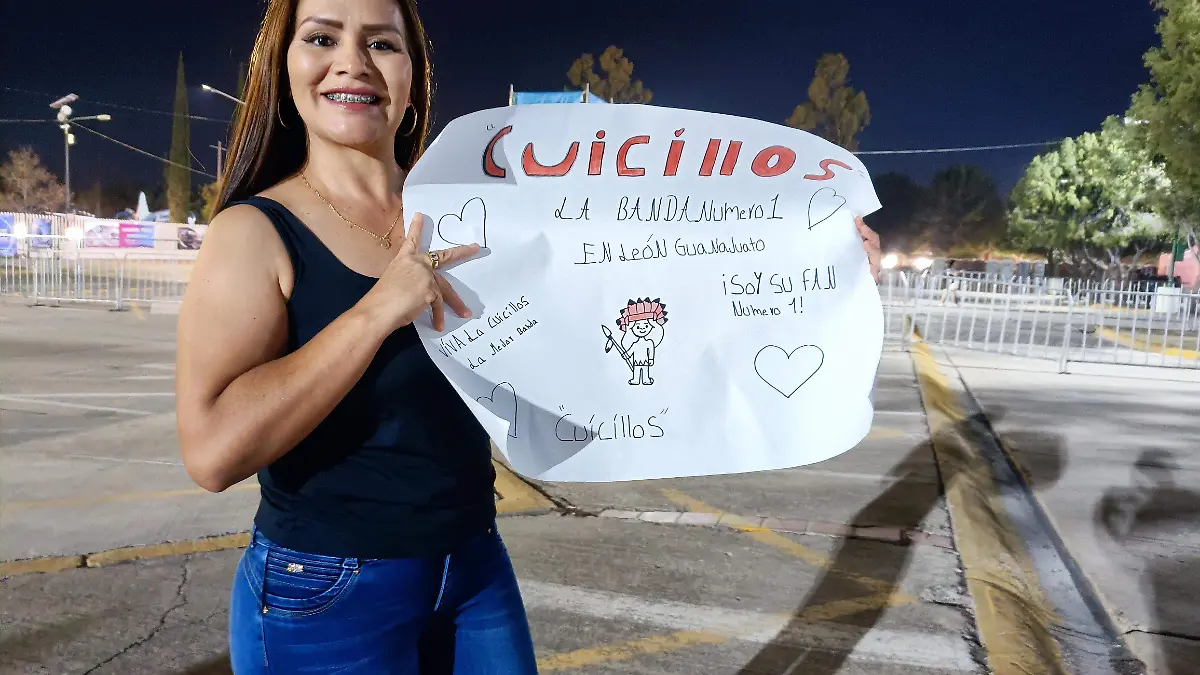 "CUICILLOS"
LA BANDA NUMERO 1
EN LEÓN GUANAJUATO
¡SOY SU FAN
NUMERO 1!
VIVA LA CUICILLOS
LA MEJOR BANDA
"CUICILLOS"